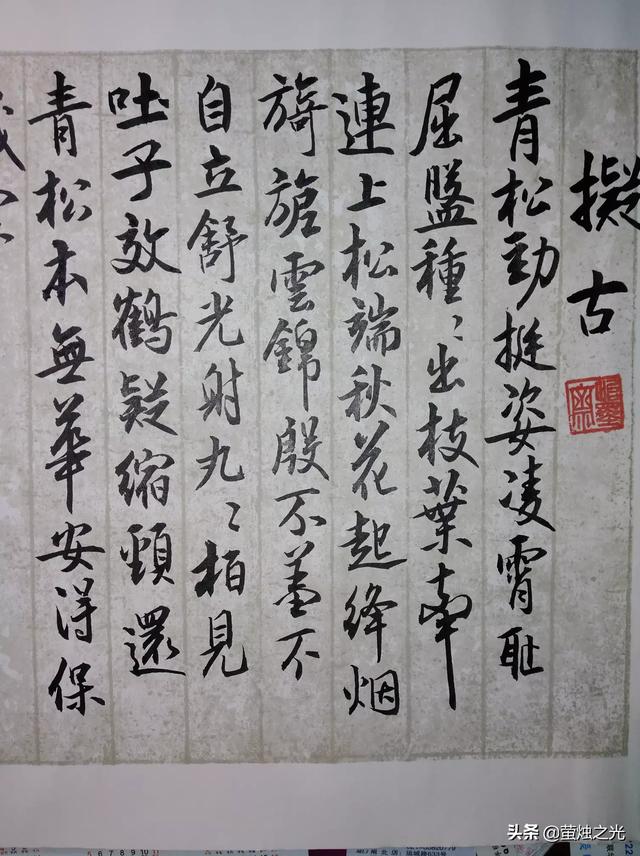 擬古
青松勁挺姿凌霄耻
屈盤種〻出枝葉牽
連上松端秋花起絳烟
旖旎雲錦殷不羞不
自立舒光射丸〻柏見
吐子效鶴疑縮頸還
青松本無華安得保
头条 @萤烛之光